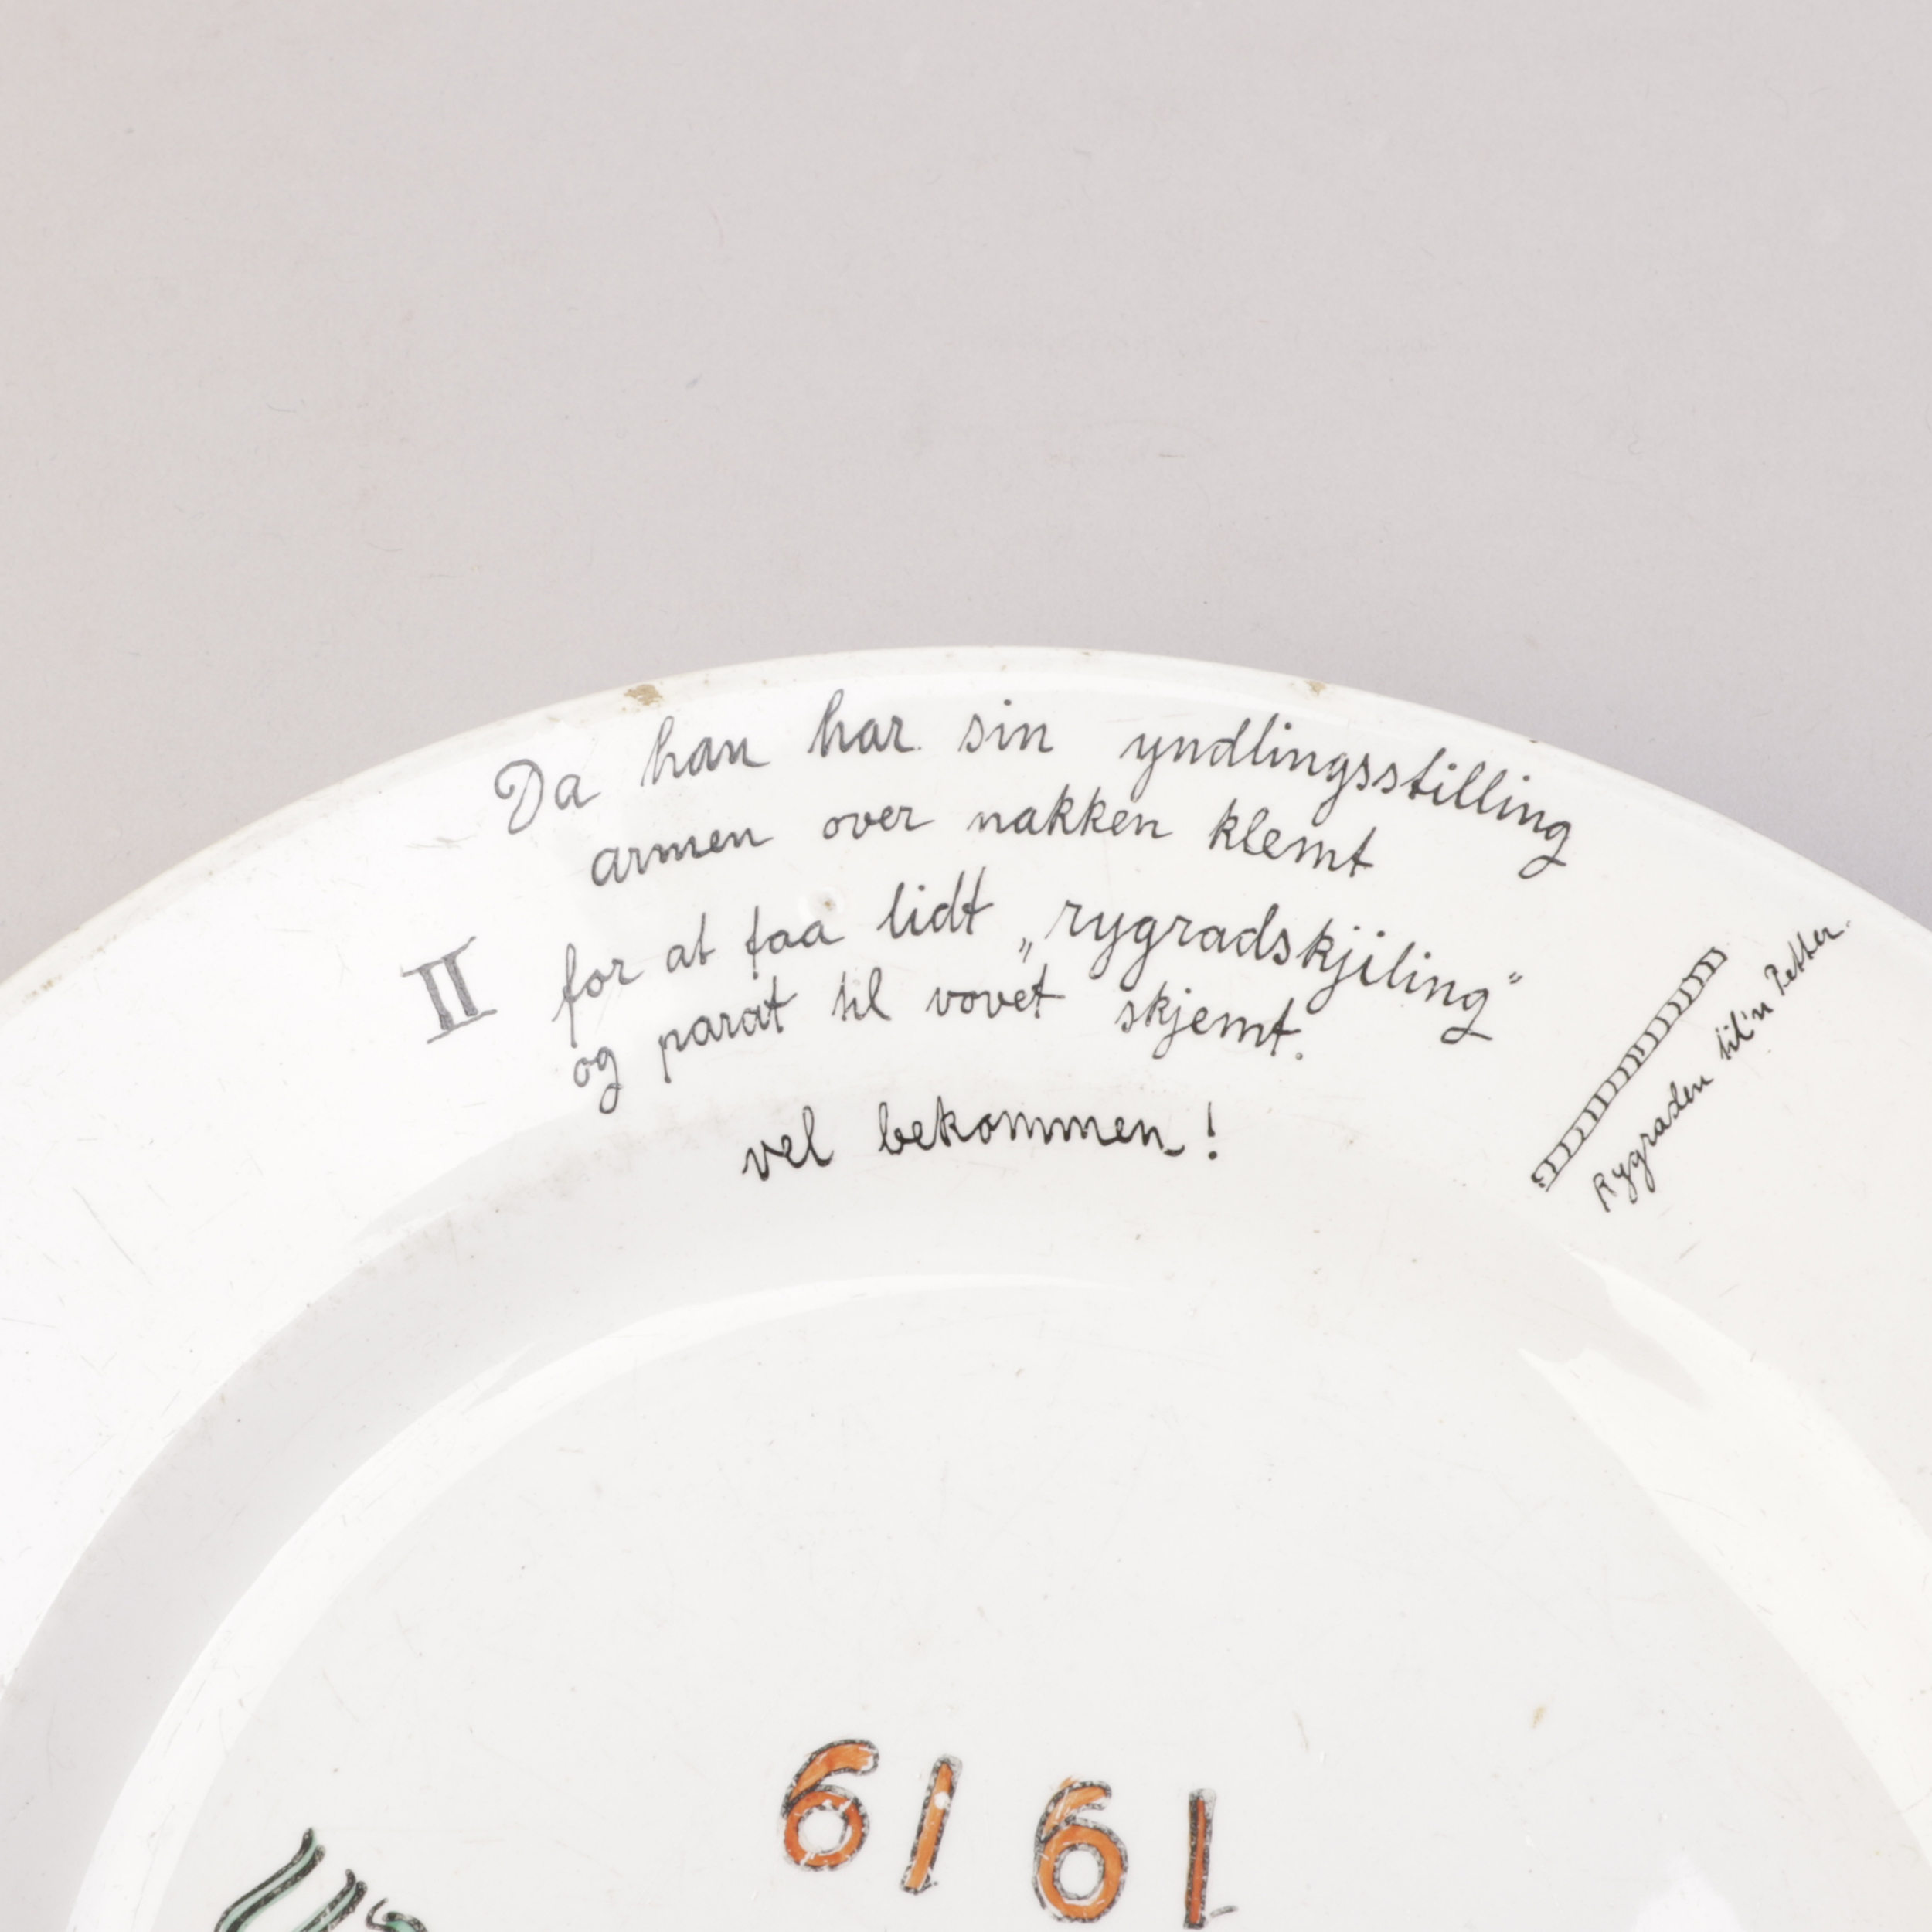 Da han har sin yndlingsstilling
armen over nakken klemt
II for at faa lidt „rygradskjiling"
og parat til vovet skjemt.
vel bekommen!
Rygraden til'n Petter.
1919